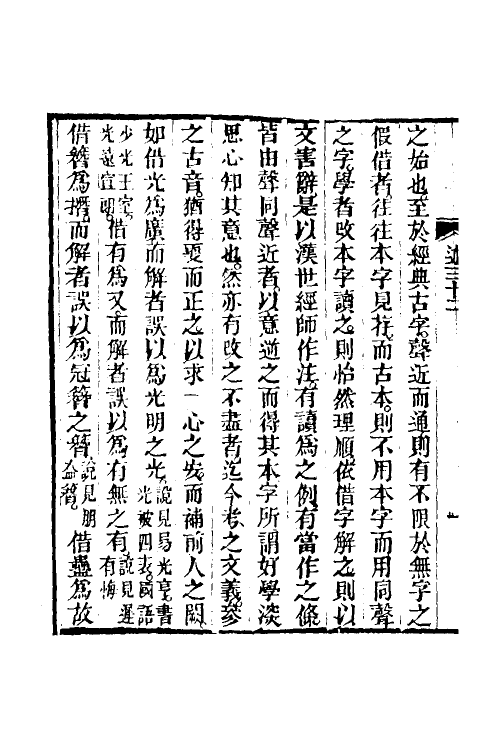 之始也至於經典古字聲近而通則有不限於無字之
假借者往往本字見存而古本則不用本字而用同聲
之字學者改本字讀之則怡然理順依借字解之則以
文害辭是以漢世經師作注有讀爲之例有當作之條
皆由聲同聲近者以意逆之而得其本字所謂好學深
思心知其意也然亦有改之不盡者迄今考之文義參
之古音猶得更而正之以求一心之安而補前人之闕
如借光爲廣而解者誤以爲光明之光說見易光亨書光被四表國語
少光王室光遠宣朗借有爲又而解者誤以爲有無之有說見遲有悔
借簪爲撍而解者誤以爲冠簪之簪說見朋盍簪借蠱爲故